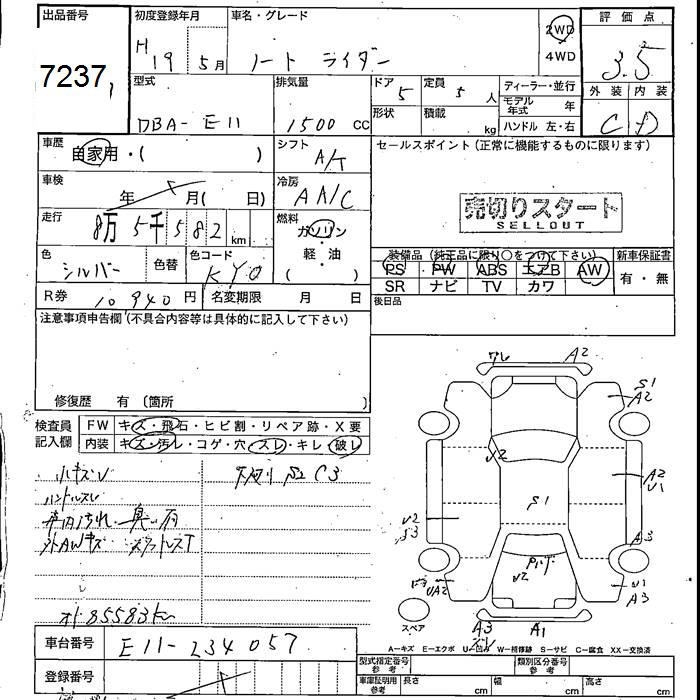 出品番号 初度登録年月 車名・グレード 2WD 評価点
H19 5月 ノート ライダー 4WD 3.5
7237 型式 排気量 ドア 5 定員 5 人 ディーラー・並行 外装 内装
DBA-E11 1500 CC 形状 積載 kg モデル年式 年 C D
ハンドル 左・右
車歴 自家用・( ) シフト A/T セールスポイント (正常に機能するものに限ります)
車検 年 月( 日) 冷房 A/C
売切りスタート
SELLOUT
走行 8万5千582 km 燃料 ガソリン
軽・油
( )
色 シルバー 色替 色コード KY0
装備品(純正品に限り○をつけて下さい) 新車保証書
PS PW ABS エアB AW 有・無
SR ナビ TV カワ
R券 10940円 名変期限 月 日 後日品
注意事項申告欄(不具合内容等は具体的に記入して下さい)
修復歴 有 〔箇所 〕
検査員記入欄 FW キズ・飛石・ヒビ割・リペア跡・X要
内装 キズ・汚レ・コゲ・穴・スレ・キレ・破レ
小キズU 下廻り S2 C3
ハンドルスレ
車内汚れ・臭い有
外AWキズ スタットレスT
オド85583km
ワレ A2
S1
A2
U2
S1
A2
U1
U2
S3
A3
U2
UA2
U1
A3
スペア
A3
A1
A-キズ E-エクボ U-凹み W-補修跡 S-サビ C-腐食 XX-交換済
車台番号 E11-234057
型式指定番号 参考 類別区分番号 参考
登録番号
車庫証明用 参考 長さ cm 幅 cm 高さ cm